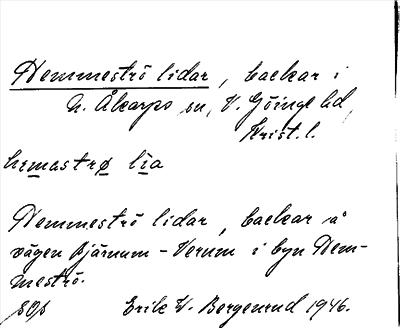 Hemmeströ lidar, backar i
N. Åkarps sn, V. Göinge hd,
Krist. l.
hemastrø lia
Hemmeströ lidar, backar å
vägen Bjärnum - Verum i byn Hem-
meströ.
Erik W. Bergenrud 1946.